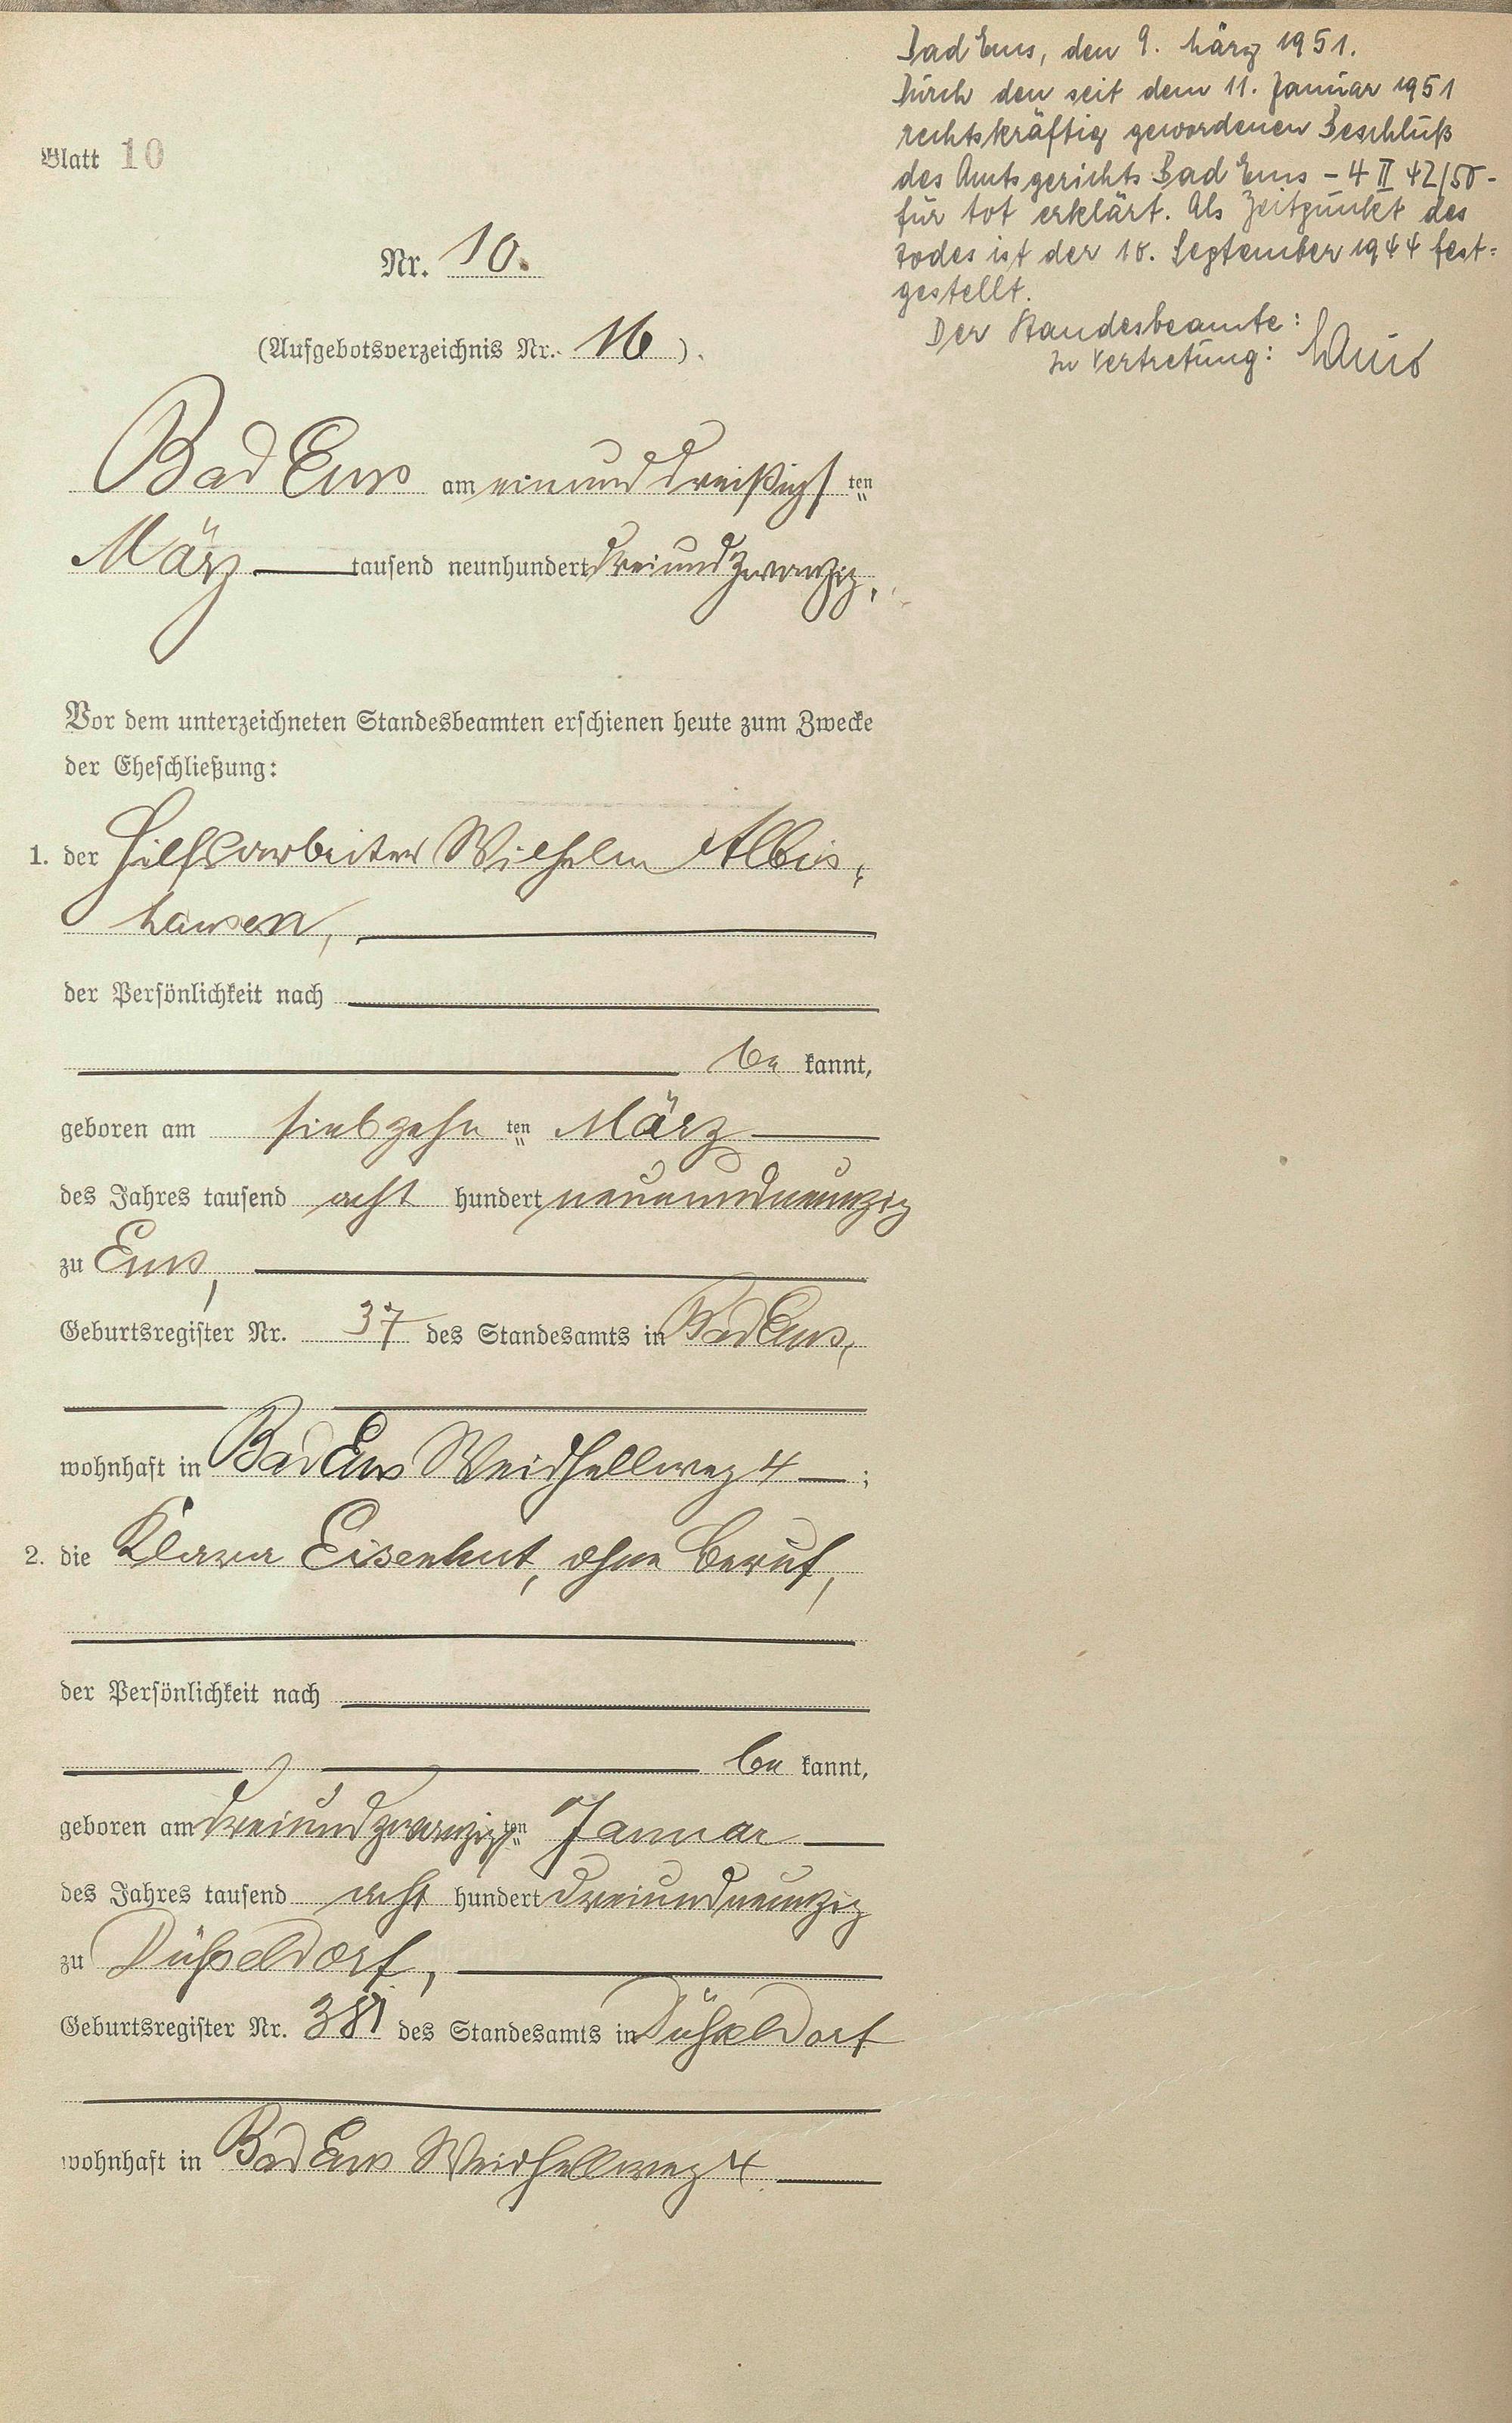 Bad Ems, den 9. März 1951.
Durch den seit dem 11. Januar 1951
rechtskräftig gewordenen Beschluß
des Amtsgerichts Bad Ems – 4 II 42/50 –
für tot erklärt. Als Zeitpunkt des
Todes ist der 10. September 1944 fest=
gestellt.
Der Standesbeamte:
In Vertretung:
Blatt 10
Nr. 10.
(Aufgebotsverzeichnis Nr. 16).
Bad Ems am einunddreißigsten
März tausend neunhundert dreiundzwanzig.
Vor dem unterzeichneten Standesbeamten erschienen heute zum Zwecke
der Eheschließung:
1. der Hilfsarbeiter Wilhelm Albis=
hausen,
der Persönlichkeit nach
be kannt,
geboren am siebzehn ten März
des Jahres tausend acht hundert neunundneunzig
zu Ems,
Geburtsregister Nr. 37 des Standesamts in Bad Ems,
wohnhaft in Bad Ems Weidhellweg 4 ;
2. die Klara Eisenhut, ohne Beruf,
der Persönlichkeit nach
be kannt,
geboren am dreiundzwanzigsten Januar
des Jahres tausend acht hundert dreiundneunzig
zu Düsseldorf,
Geburtsregister Nr. 381 des Standesamts in Düsseldorf
wohnhaft in Bad Ems Weidhellweg 4